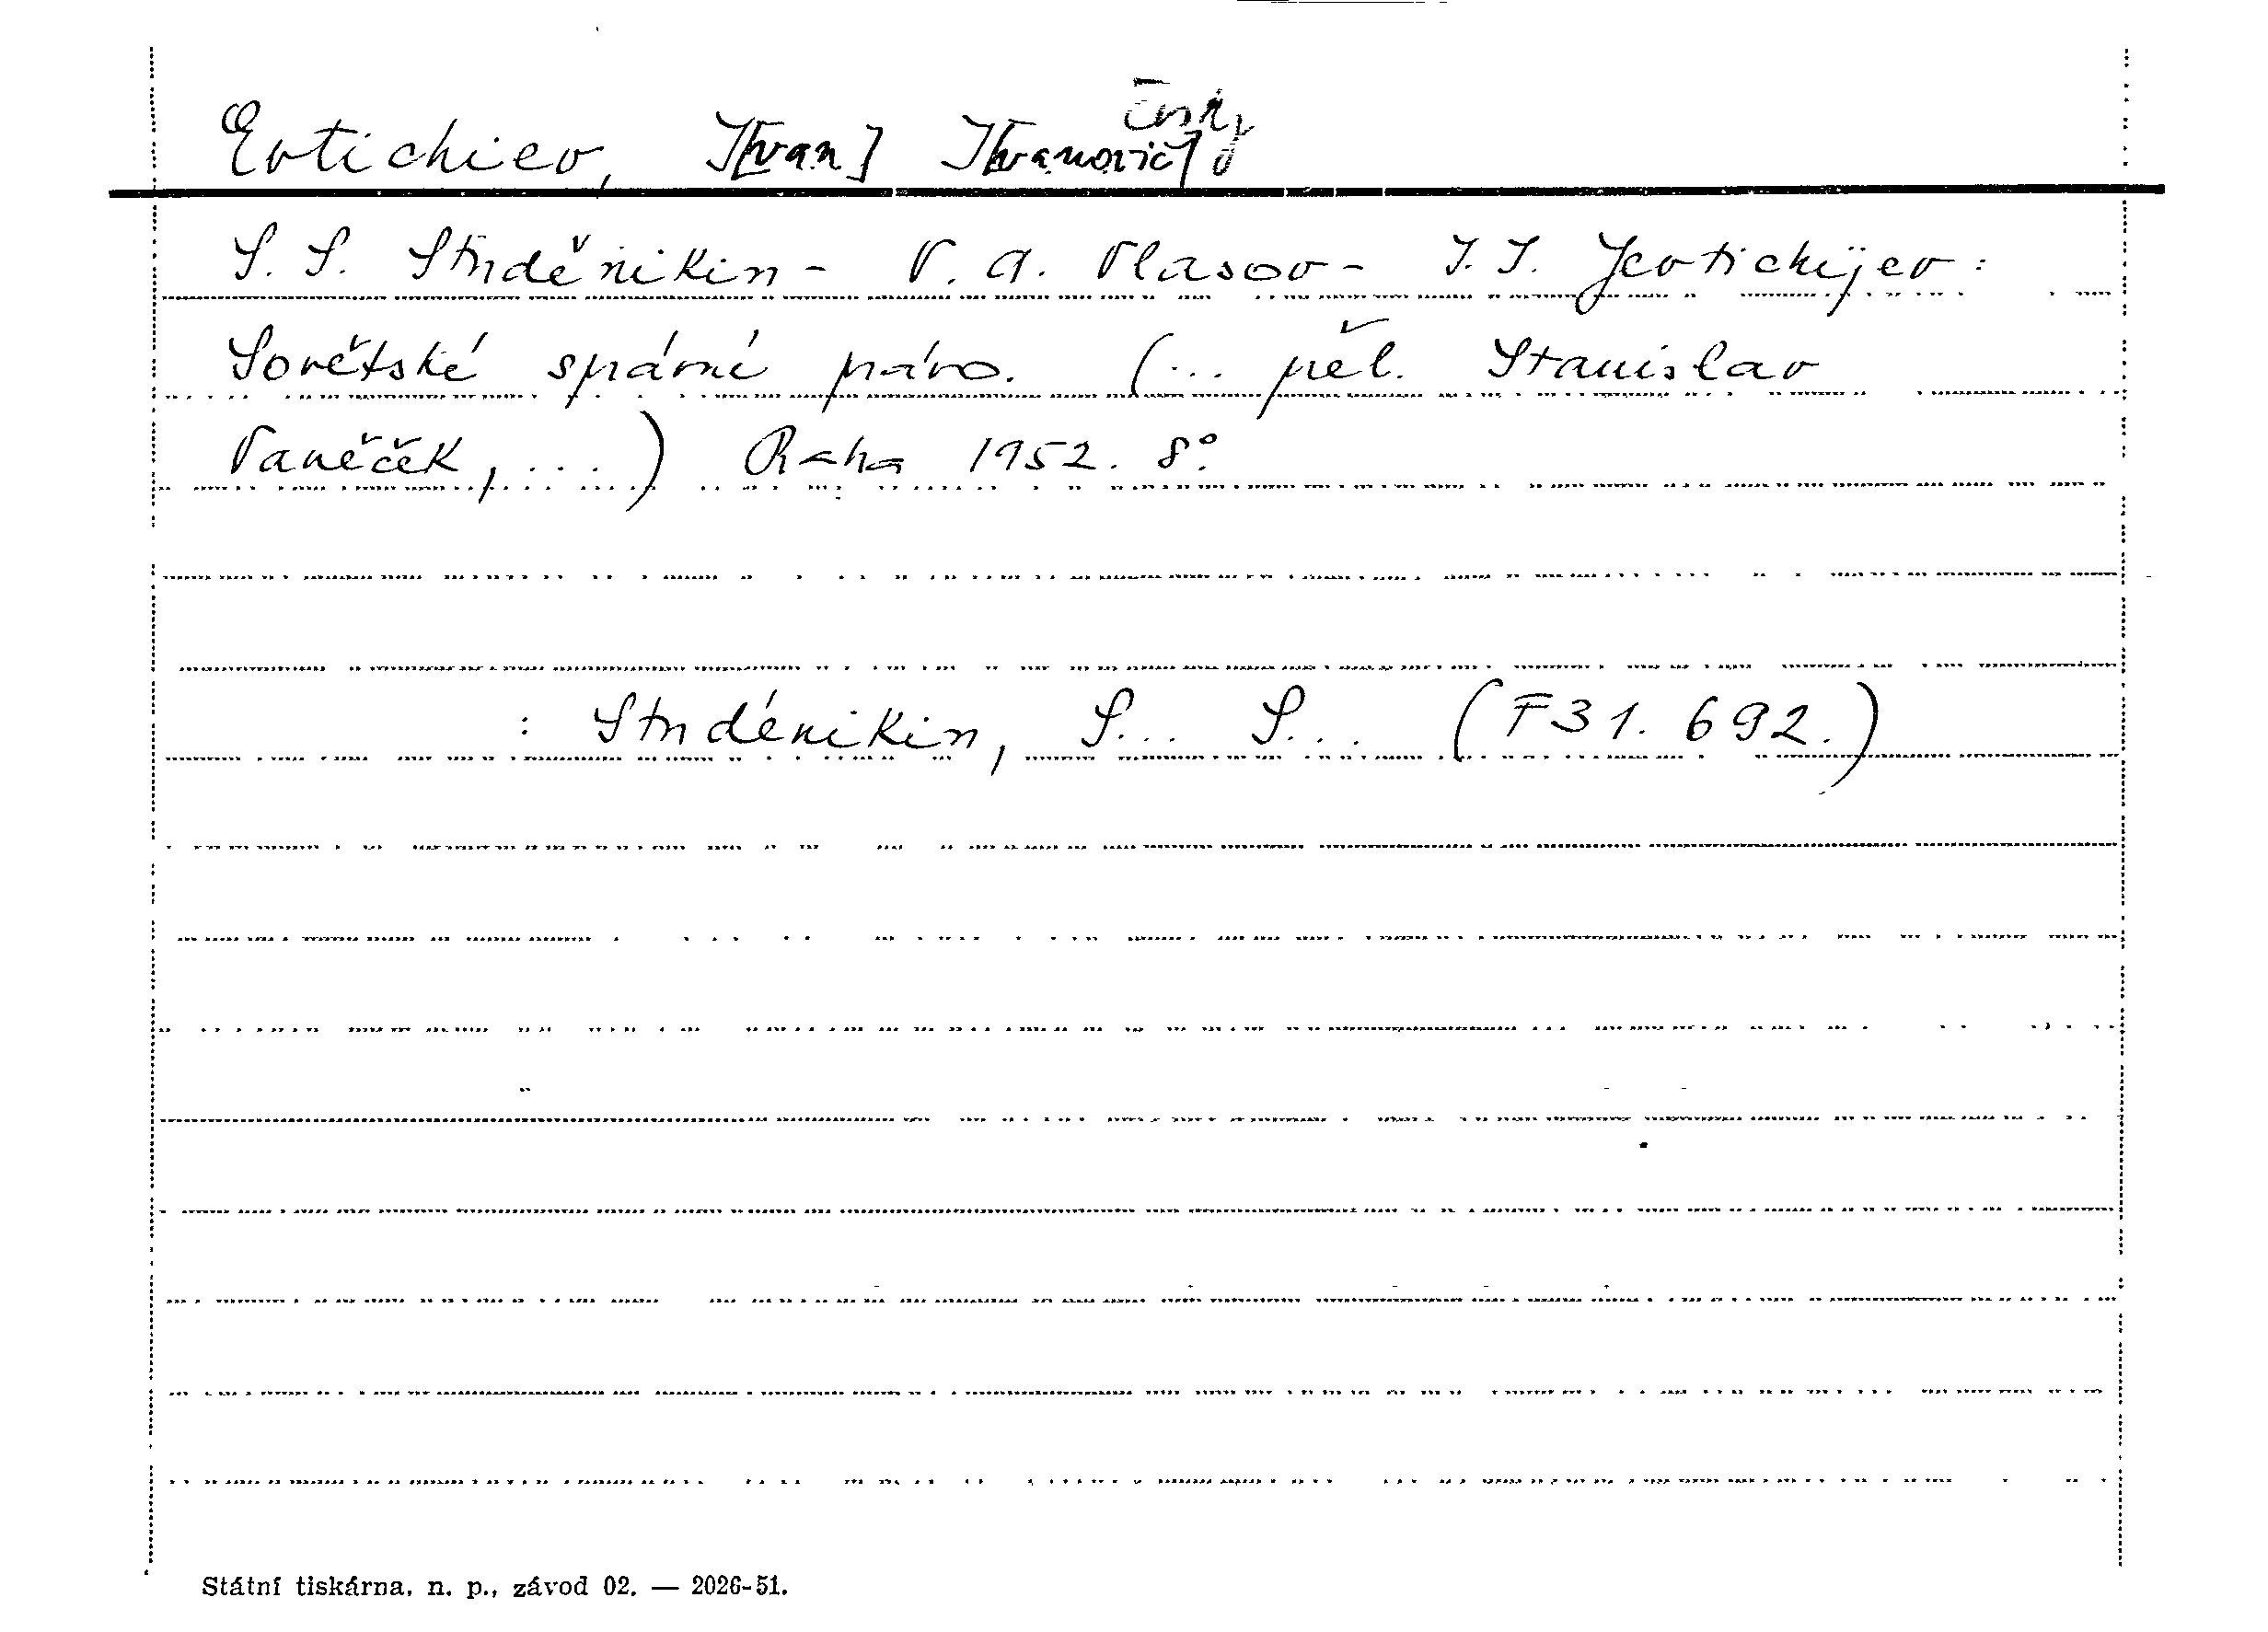 Evtichiev, I[van] I[vanovič] česky
S. S. Studěnikin - V. A. Vlasov - I. I. Jevtichijev:
Sovětské správní právo. (... přel. Stanislav
Vaněček, ...) Praha 1952. 8°.
: Studěnikin, S... S... (F31.692.)
Státní tiskárna, n. p., závod 02. — 2026-51.